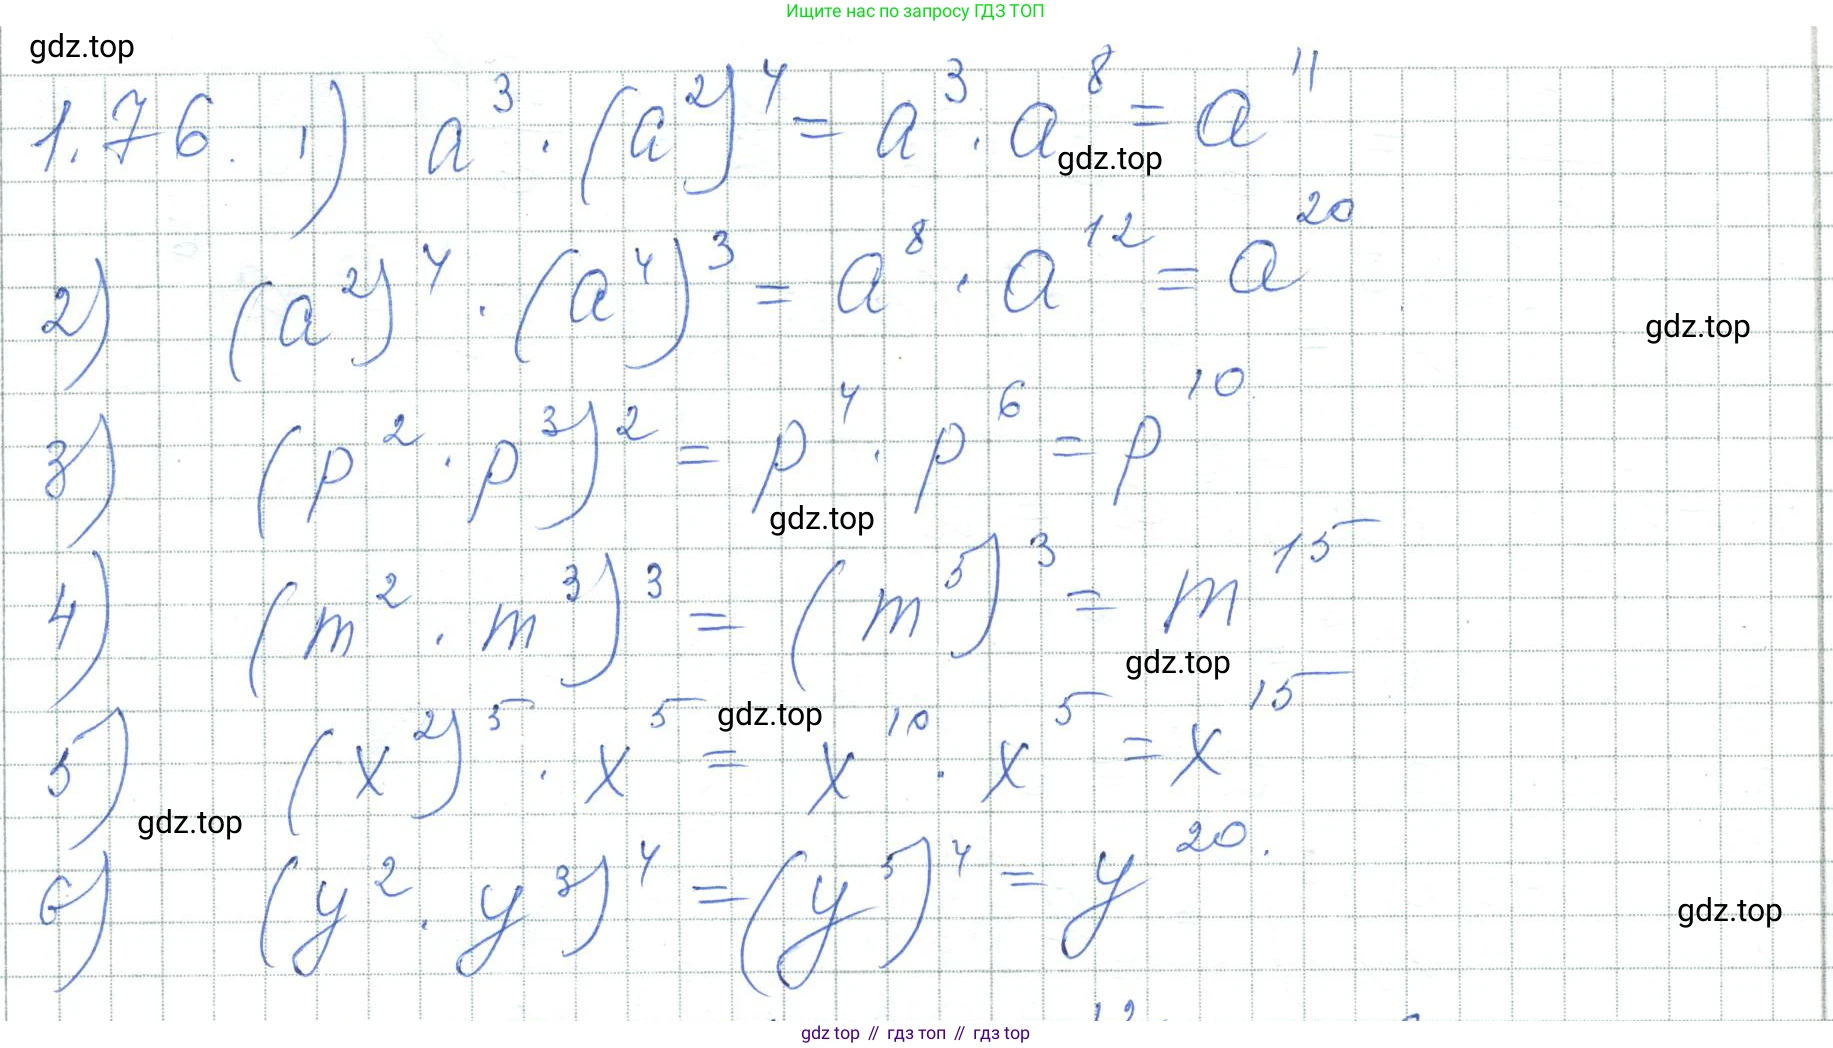 Ищите нас по запросу ГДЗ ТОП
gdz.top
1.76. 1) a³ · (a²)⁴ = a³ · a⁸ = a¹¹
gdz.top
2) (a²)⁴ · (a⁴)³ = a⁸ · a¹² = a²⁰
gdz.top
3) (p² · p³)² = p⁴ · p⁶ = p¹⁰
gdz.top
4) (m² · m³)³ = (m⁵)³ = m¹⁵
gdz.top
5) (x²)⁵ · x⁵ = x¹⁰ · x⁵ = x¹⁵
gdz.top
gdz.top
6) (y² · y³)⁴ = (y⁵)⁴ = y²⁰.
gdz.top
gdz.top // гдз топ // gdz top